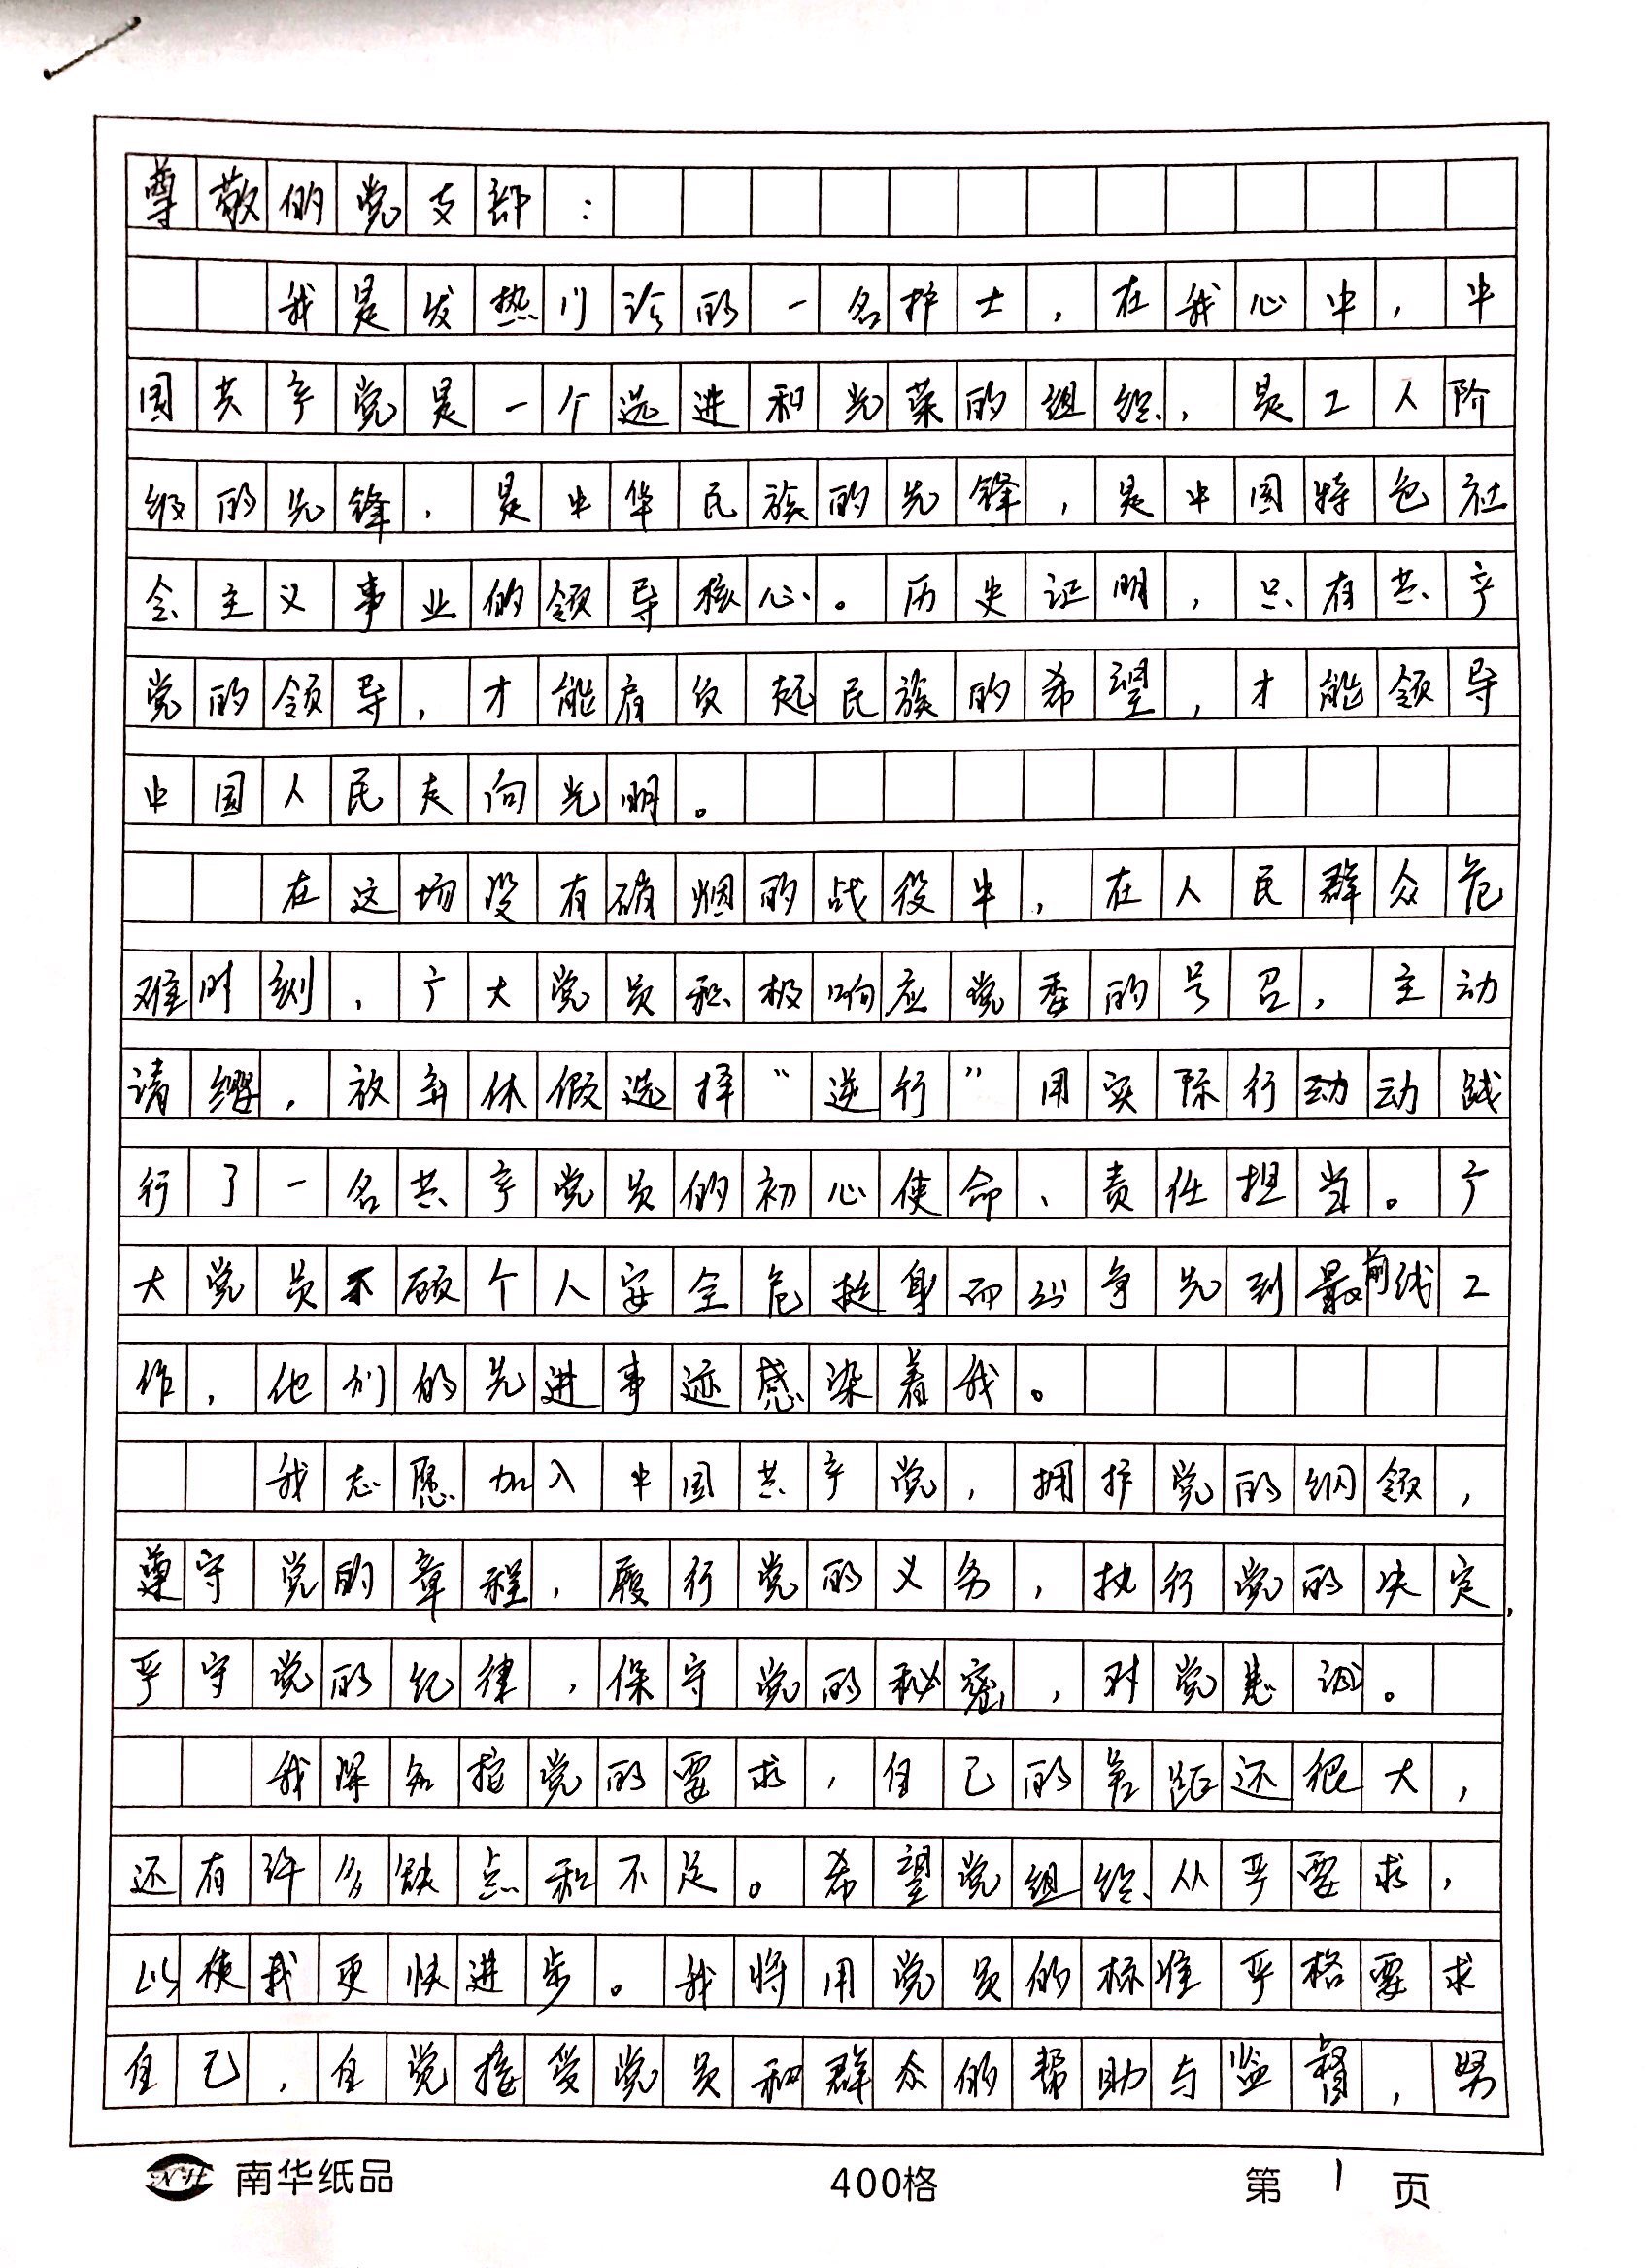 尊敬的党支部：
我是发热门诊的一名护士，在我心中，中
国共产党是一个选进和光荣的组织，是工人阶
级的先锋，是中华民族的先锋，是中国特色社
会主义事业的领导核心。历史证明，只有共产
党的领导，才能肩负起民族的希望，才能领导
中国人民走向光明。
在这场没有硝烟的战役中，在人民群众危
难时刻，广大党员积极响应党委的号召，主动
请缨，放弃休假选择“逆行”用实际行动动践
行了一名共产党员的初心使命、责任担当。广
大党员不顾个人安全危挺身而出争先到最前线工
作，他们的先进事迹感染着我。
我志愿加入中国共产党，拥护党的纲领，
遵守党的章程，履行党的义务，执行党的决定，
严守党的纪律，保守党的秘密，对党忠诚。
我深知按党的要求，自己的差距还很大，
还有许多缺点和不足。希望党组织从严要求，
以使我更快进步。我将用党员的标准严格要求
自己，自觉接受党员和群众的帮助与监督，努
NH 南华纸品 400格 第 1 页